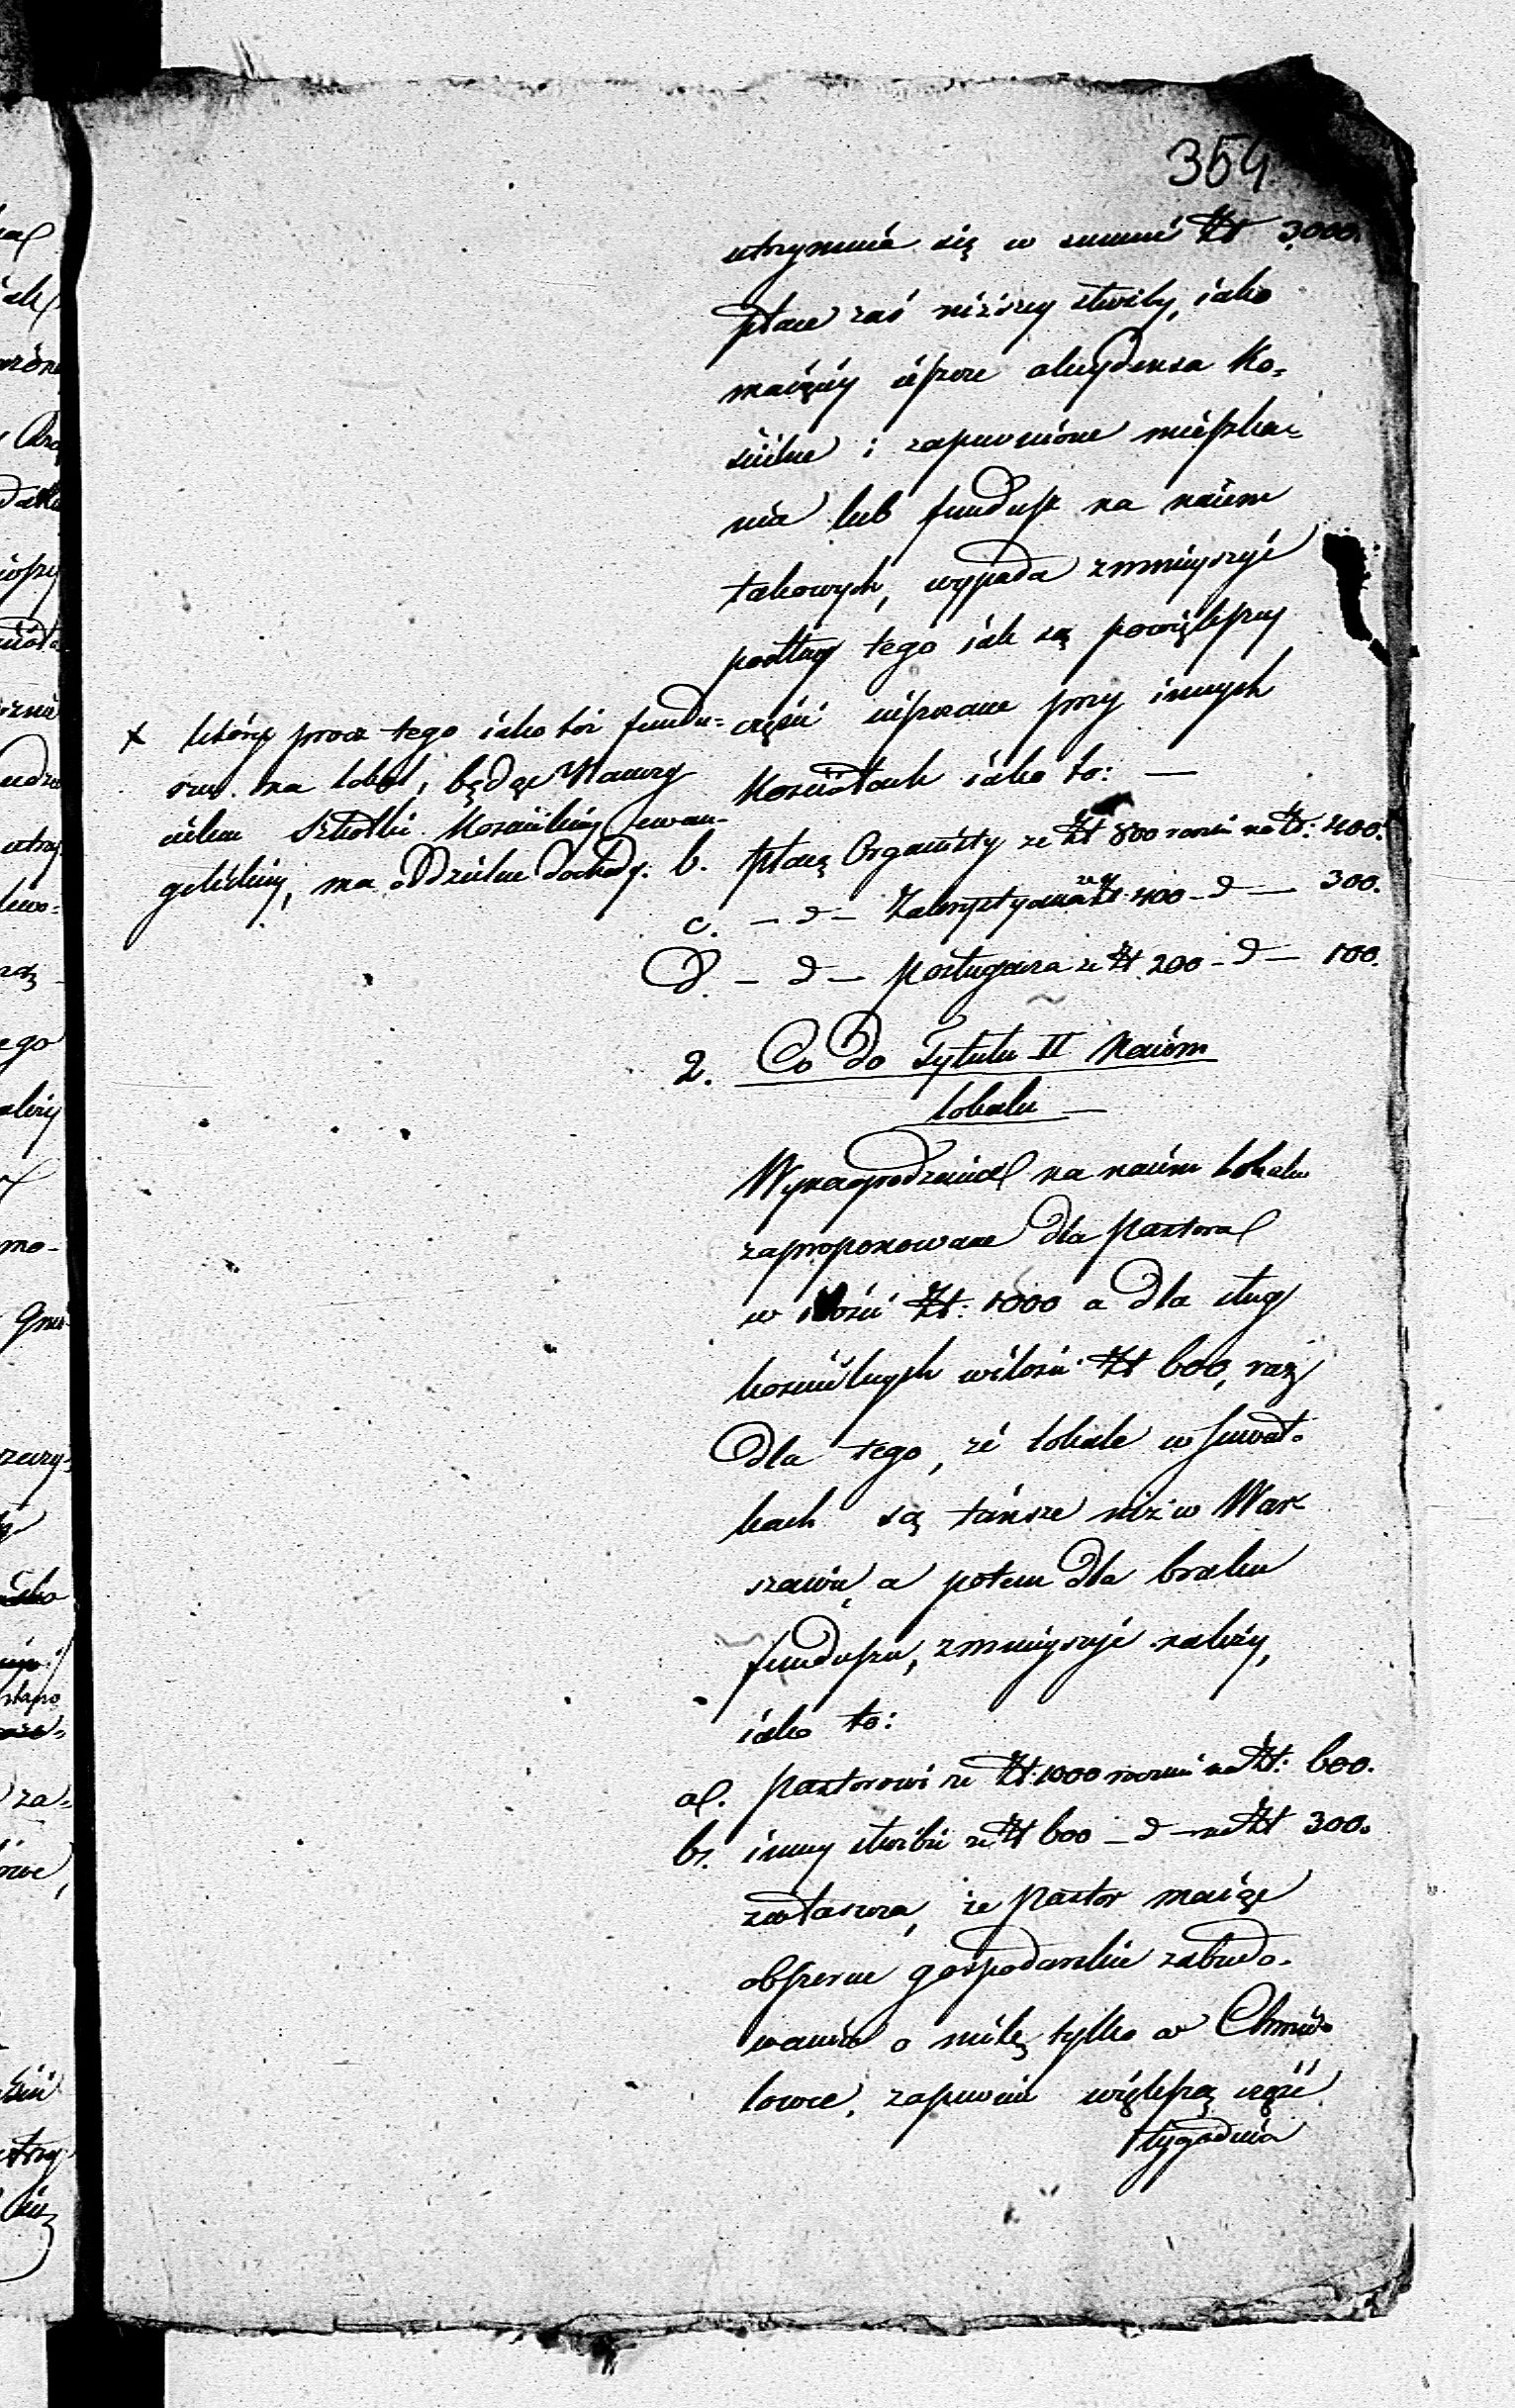 354
utrzymuie się w summie Zł 3,000.
płace zaś niższey służby, iako
maiącéy ieszcze akcydensa Ko=
ścielne i zapewnione mieszka=
nia lub fundusz na naiem
takowych, wypada zmnieyszyć
podług tego iak są powiększey
części wiposane przy innych
Kosciołach iako to: —
× który procz tego iako też fundu=
szu na lokal, będąc Nauczy
cielem Szkołki Kościelney ewan-
gelickiey, ma oddzielne dochody.
b. płacę Organisty ze Zł 800 rocznie na Zł: 400.
c. — d — Zakrystyana ze Zł 400 — d — 300.
d. — d — posługacza ze Zł 200 — d — 100.
2. Co do Tytułu II Naiém
Lokalu —
Wynagrodzenia na naiém Lokalu
zaproponowane dla Pastora
w ilości Zł: 1000 a dla sług
koscielnych w ilości Zł 600, raz
dla tego, że lokale w Suwał-
kach są tańsze niż w War-
szawie, a potem dla braku
funduszu, zmnieyszyć należy,
iako to:
a. Pastorowi ze Zł: 1000 rocznie na Zł: 600.
b. inney służbie ze Zł 600 — d — na Zł 300.
zwłaszcza, że Pastor maiąc
obszerne gospodarskie zabudo-
wania o milę tylko w Chmie-
lowce, zapewnie większą część
tygodnia